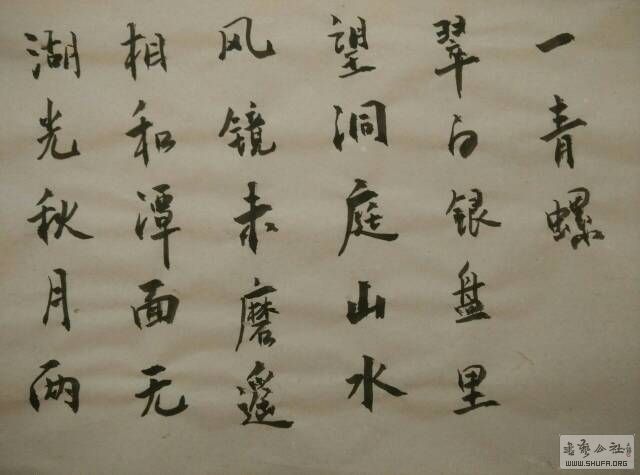 湖光秋月两
相和潭面无
风镜未磨遥
望洞庭山水
翠白银盘里
一青螺
书艺公社
WWW.SHUFA.ORG